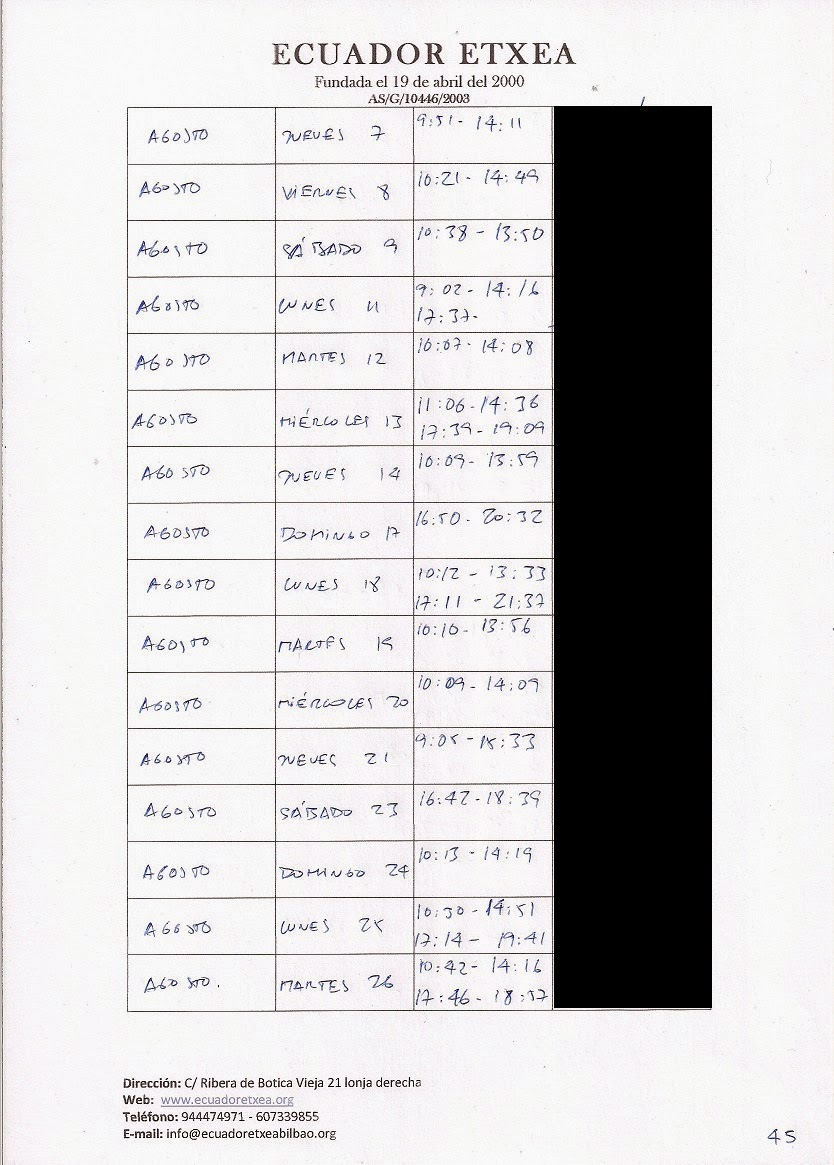 ECUADOR ETXEA
Fundada el 19 de abril del 2000
AS/G/10446/2003
AGOSTO JUEVES 7 9:51 - 14:11
AGOSTO VIERNES 8 10:21 - 14:49
AGOSTO SÁBADO 9 10:38 - 13:50
AGOSTO LUNES 11 9:02 - 14:16
17:37-
AGOSTO MARTES 12 10:07 - 14:08
AGOSTO MIÉRCOLES 13 11:06 - 14:36
17:39 - 19:09
AGOSTO JUEVES 14 10:09 - 13:59
AGOSTO DOMINGO 17 16:50 - 20:32
AGOSTO LUNES 18 10:12 - 13:33
17:11 - 21:37
AGOSTO MARTES 19 10:10 - 13:56
AGOSTO MIÉRCOLES 20 10:09 - 14:09
AGOSTO JUEVES 21 9:05 - 15:33
AGOSTO SÁBADO 23 16:42 - 18:39
AGOSTO DOMINGO 24 10:13 - 14:19
AGOSTO LUNES 25 10:30 - 14:51
17:14 - 19:41
AGOSTO. MARTES 26 10:42 - 14:16
17:46 - 18:57
Dirección: C/ Ribera de Botica Vieja 21 lonja derecha
Web: www.ecuadoretxea.org
Teléfono: 944474971 - 607339855
E-mail: info@ecuadoretxeabilbao.org
45